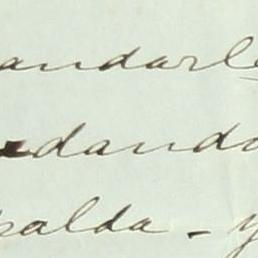 andarle
edando
palda - y